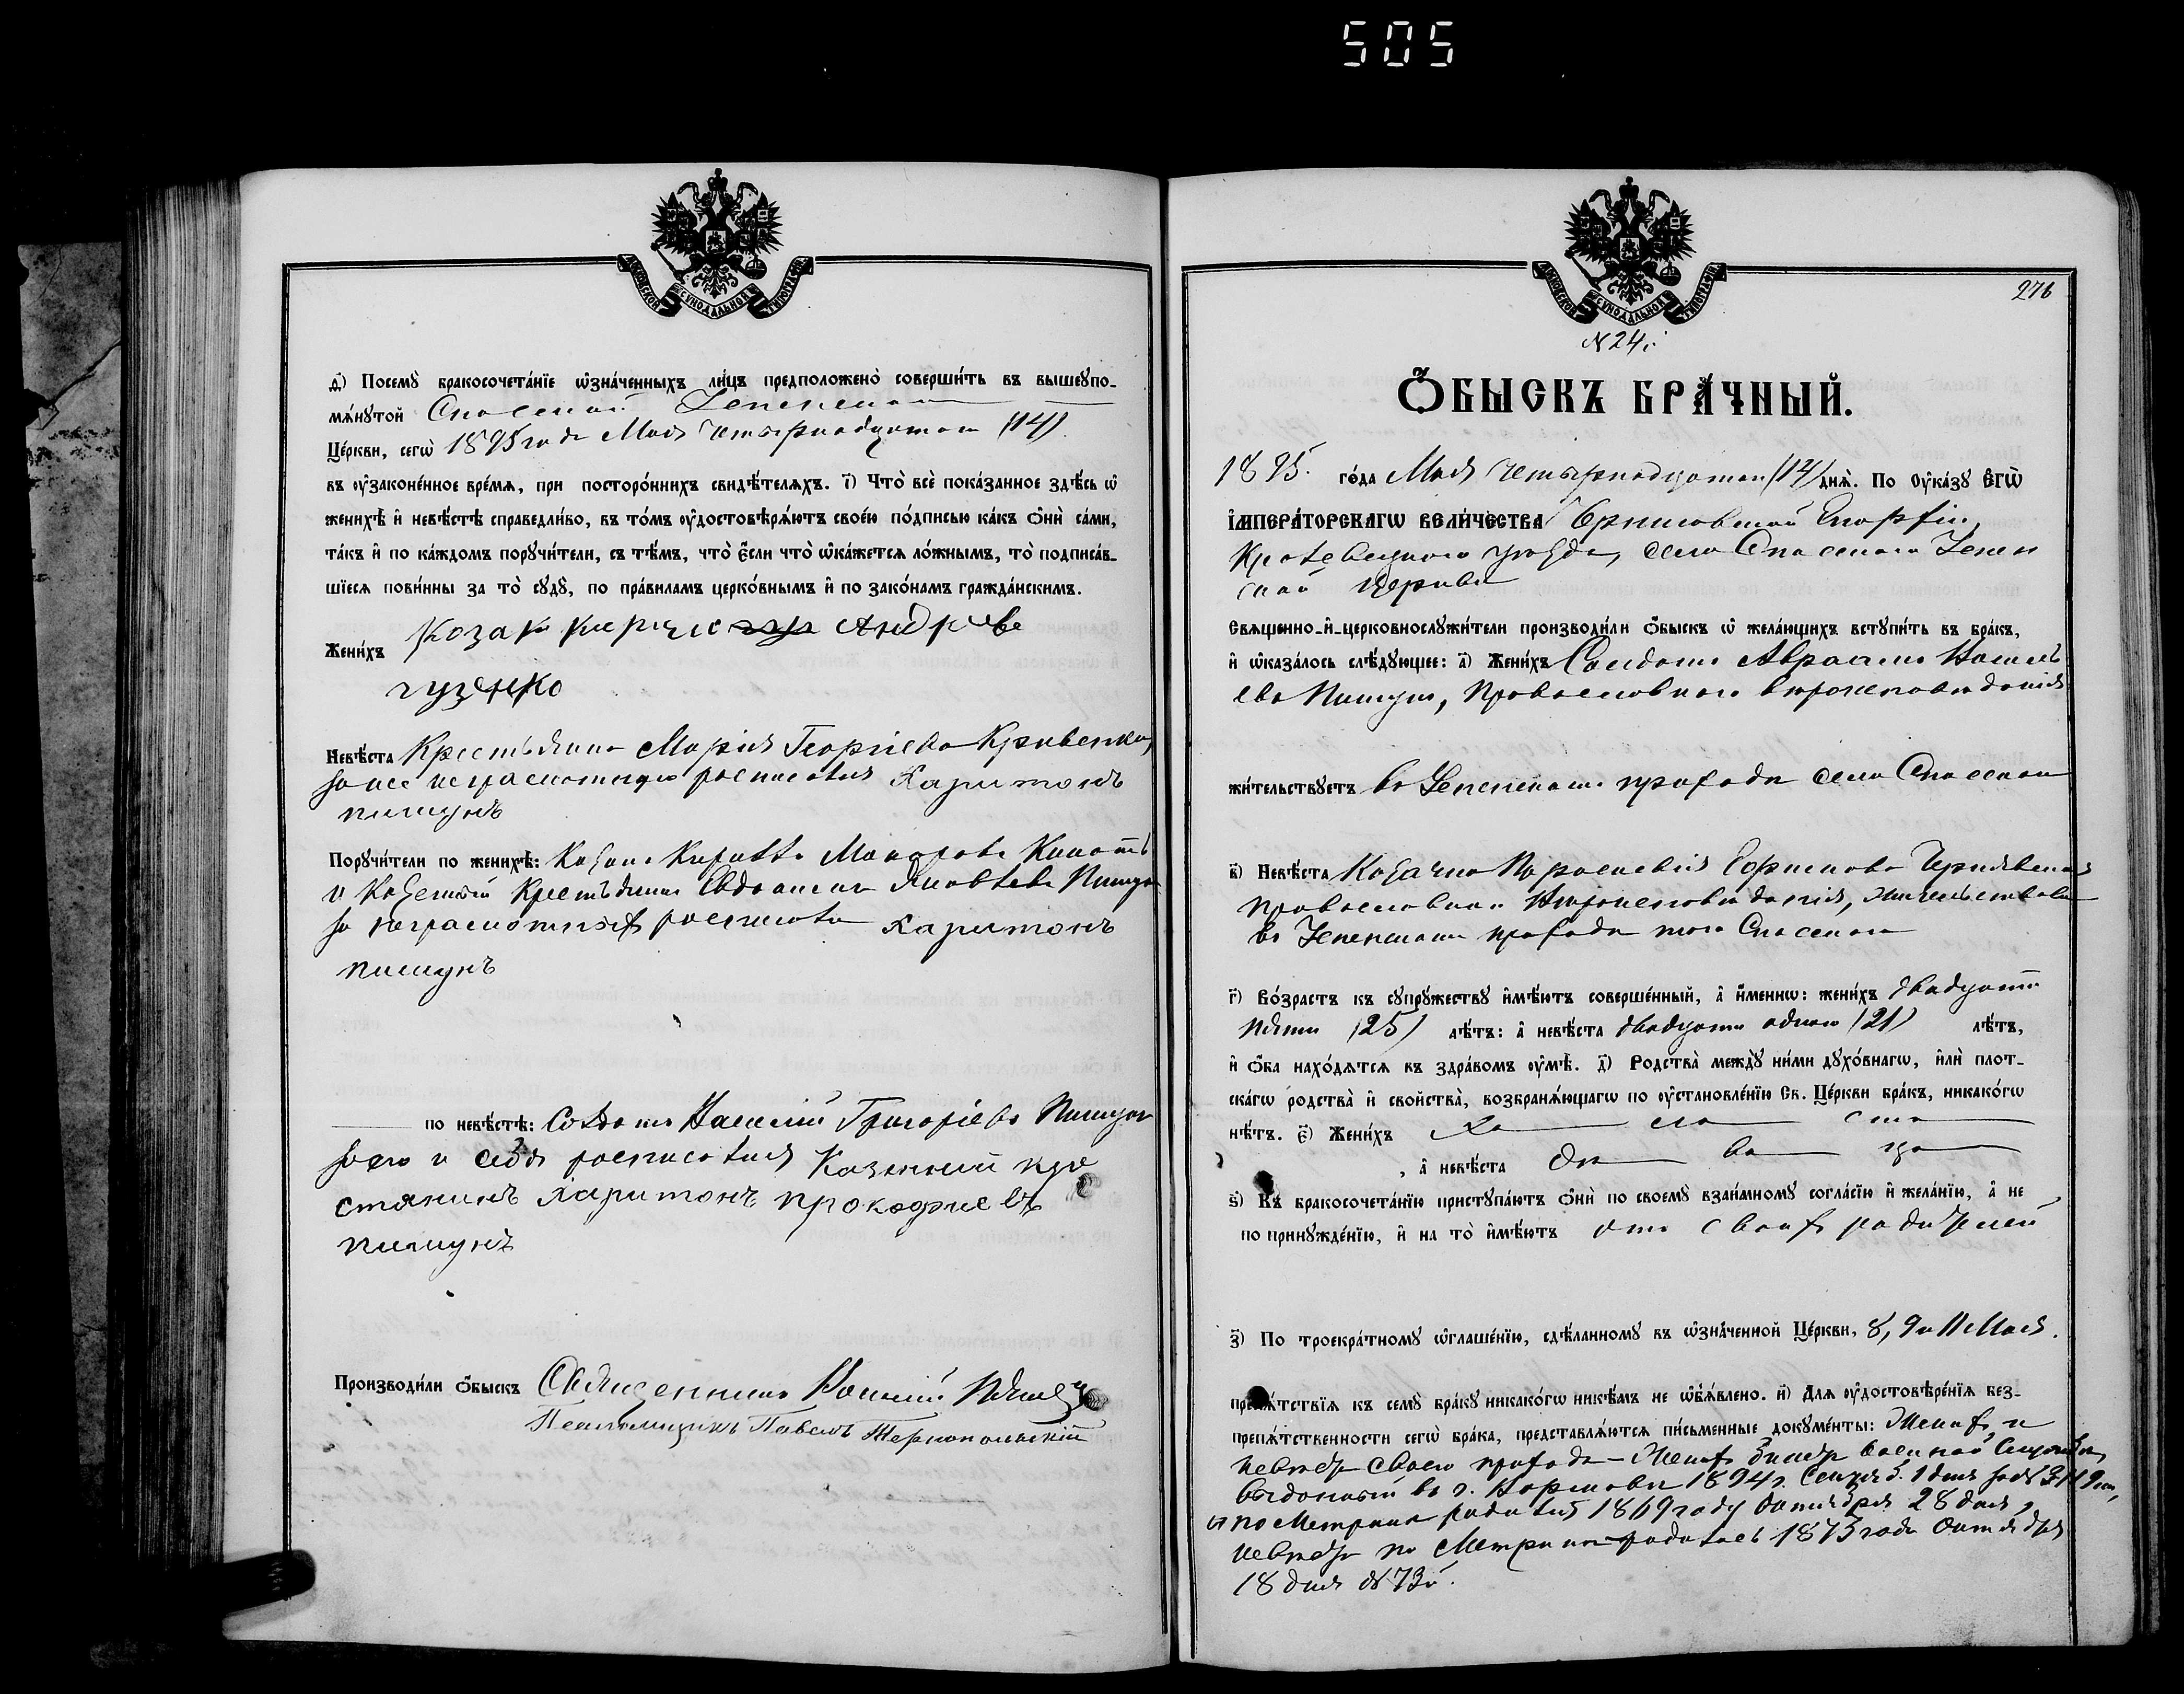 505
МОСКОВСКОЙ СУНОДАЛЬНОЙ ТИПОГРАФІИ
ѳ҃) Посемꙋ̀ бракосочета́нїе ѡ҆зна́ченныхъ ли́цъ предположено̀ соверши́ть въ вышеꙋпо-
мѧ́нꙋтой Спасской
Це́ркви, сегѡ̀ 1895 года Мая четырнадцатаго (14)
въ ᲂу҆законе́нное вре́мѧ, при посторо́ннихъ свидѣ́телѧхъ. і҃) Что̀ всѐ пока́занное здѣ́сь ѡ҆
женихѣ̀ и҆ невѣ́стѣ справедли́во, въ то́мъ ᲂу҆достовѣрѧ́ютъ свое́ю по́дписью ка́къ ѻ҆нѝ са́ми,
та́къ и҆ по ка́ждомъ порꙋчи́тели, съ тѣ́мъ, что̀ є҆́сли что̀ ѡ҆ка́жетсѧ ло́жнымъ, то̀ подписа́в-
шїесѧ пови́нны за то̀ сꙋдꙋ̀, по пра́виламъ церко́внымъ и҆ по зако́намъ гражда́нскимъ.
Жени́хъ Козак Кирило Андриев
гузенко
Невѣ́ста Крестьянка Марія Георгіева Кривенко,
за нее неграмотную росписался Харитонъ
пишунъ
Порꙋчи́тели по женихѣ̀: Козакъ Кириллъ Макаровъ
и Казенный Крестьянинъ Евдокимъ Яковлевъ Пишунъ
за неграмотныхъ росписался Харитонъ
пишунъ
по невѣ́стѣ: Солдатъ Василій Григоріевъ Пишунъ
за его и себя росписался Казенний кре
стянинъ Харитонъ прокофиевъ
пишунъ
Производи́ли ѻ҆́быскъ Священникъ
Псаломщикъ Павелъ Тернопольскій
МОСКОВСКОЙ СУНОДАЛЬНОЙ ТИПОГРАФІИ
276
N 24й
Ѻ҆́БЫСКЪ БРА́ЧНЫЙ.
1895. го́да Мая четырнадцатаго (14) днѧ̀. По Оу҆ка́зꙋ Є҆гѡ̀
І҆МПЕРА́ТОРСКАГѠ ВЕЛИ́ЧЕСТВА Черниговской Епархіи,
Кролевецкаго уѣзда, села Спасскаго
ской церкви
Свѧще́нно-и҆-церковнослꙋжи́тели производи́ли ѻ҆́быскъ ѡ҆ жела́ющихъ встꙋпи́ть въ бра́къ,
и҆ ѡ҆каза́лось слѣ́дꙋющее: а҃) Жени́хъ Солдатъ Авраамъ Василь
евъ Пишунъ, Православнаго вѣроисповѣданія
жи́тельствꙋетъ въ приходѣ села Спасскаго
в҃) Невѣ́ста Козачка Параскевія Ефимова Чернявская
православнаго вѣроисповѣданія, жительствовала
въ приходѣ того Спасскаго
г҃) Во́зрастъ къ сꙋпрꙋ́жествꙋ и҆мѣ́ютъ соверше́нный, а҆ и҆́меннѡ: жени́хъ двадцати
пяти (25) лѣ́тъ: а҆ невѣ́ста двадцати одного (21) лѣ́тъ,
и҆ ѻ҆́ба нахо́дѧтсѧ въ здра́вомъ ᲂу҆мѣ̀. д҃) Родства̀ междꙋ̀ ни́ми дꙋхо́внагѡ, и҆лѝ плот-
ска́гѡ родства̀ и҆ свойства̀, возбранѧ́ющагѡ по ᲂу҆становле́нїю Св. Це́ркви бра́къ, никако́гѡ
нѣ́тъ. є҃) Жени́хъ Хо ло стъ
, а҆ невѣ́ста дѣ ви ца
ѕ҃) Къ бракосочета́нїю пристꙋпа́ютъ ѻ҆нѝ по своемꙋ̀ взаи́мномꙋ согла́сїю и҆ жела́нїю, а҆ не
по принꙋжде́нїю, и҆ на то̀ и҆мѣ́ютъ отъ своихъ родителей
з҃) По троекра́тномꙋ ѡ҆глаше́нїю, сдѣ́ланномꙋ въ ѡ҆зна́ченной Це́ркви, 8, 9 и 11 Мая.
препѧ́тствїѧ къ семꙋ̀ бра́кꙋ никако́гѡ никѣ́мъ не ѡ҆б̾ѧ́влено. и҃) Длѧ ᲂу҆достовѣре́нїѧ без-
препѧ́тственности сегѡ̀ бра́ка, представлѧ́ютсѧ пи́сьменные докꙋме́нты: Жениху и
невѣстѣ своего прихода – Жениху билетъ военной службы
выданный въ г. Варшавѣ 1894 г.
и по Метрикѣ родился 1869 году Октября 28 дня,
невѣста по Метрикѣ родилась 1873 года Октября
18 дня № 73й.